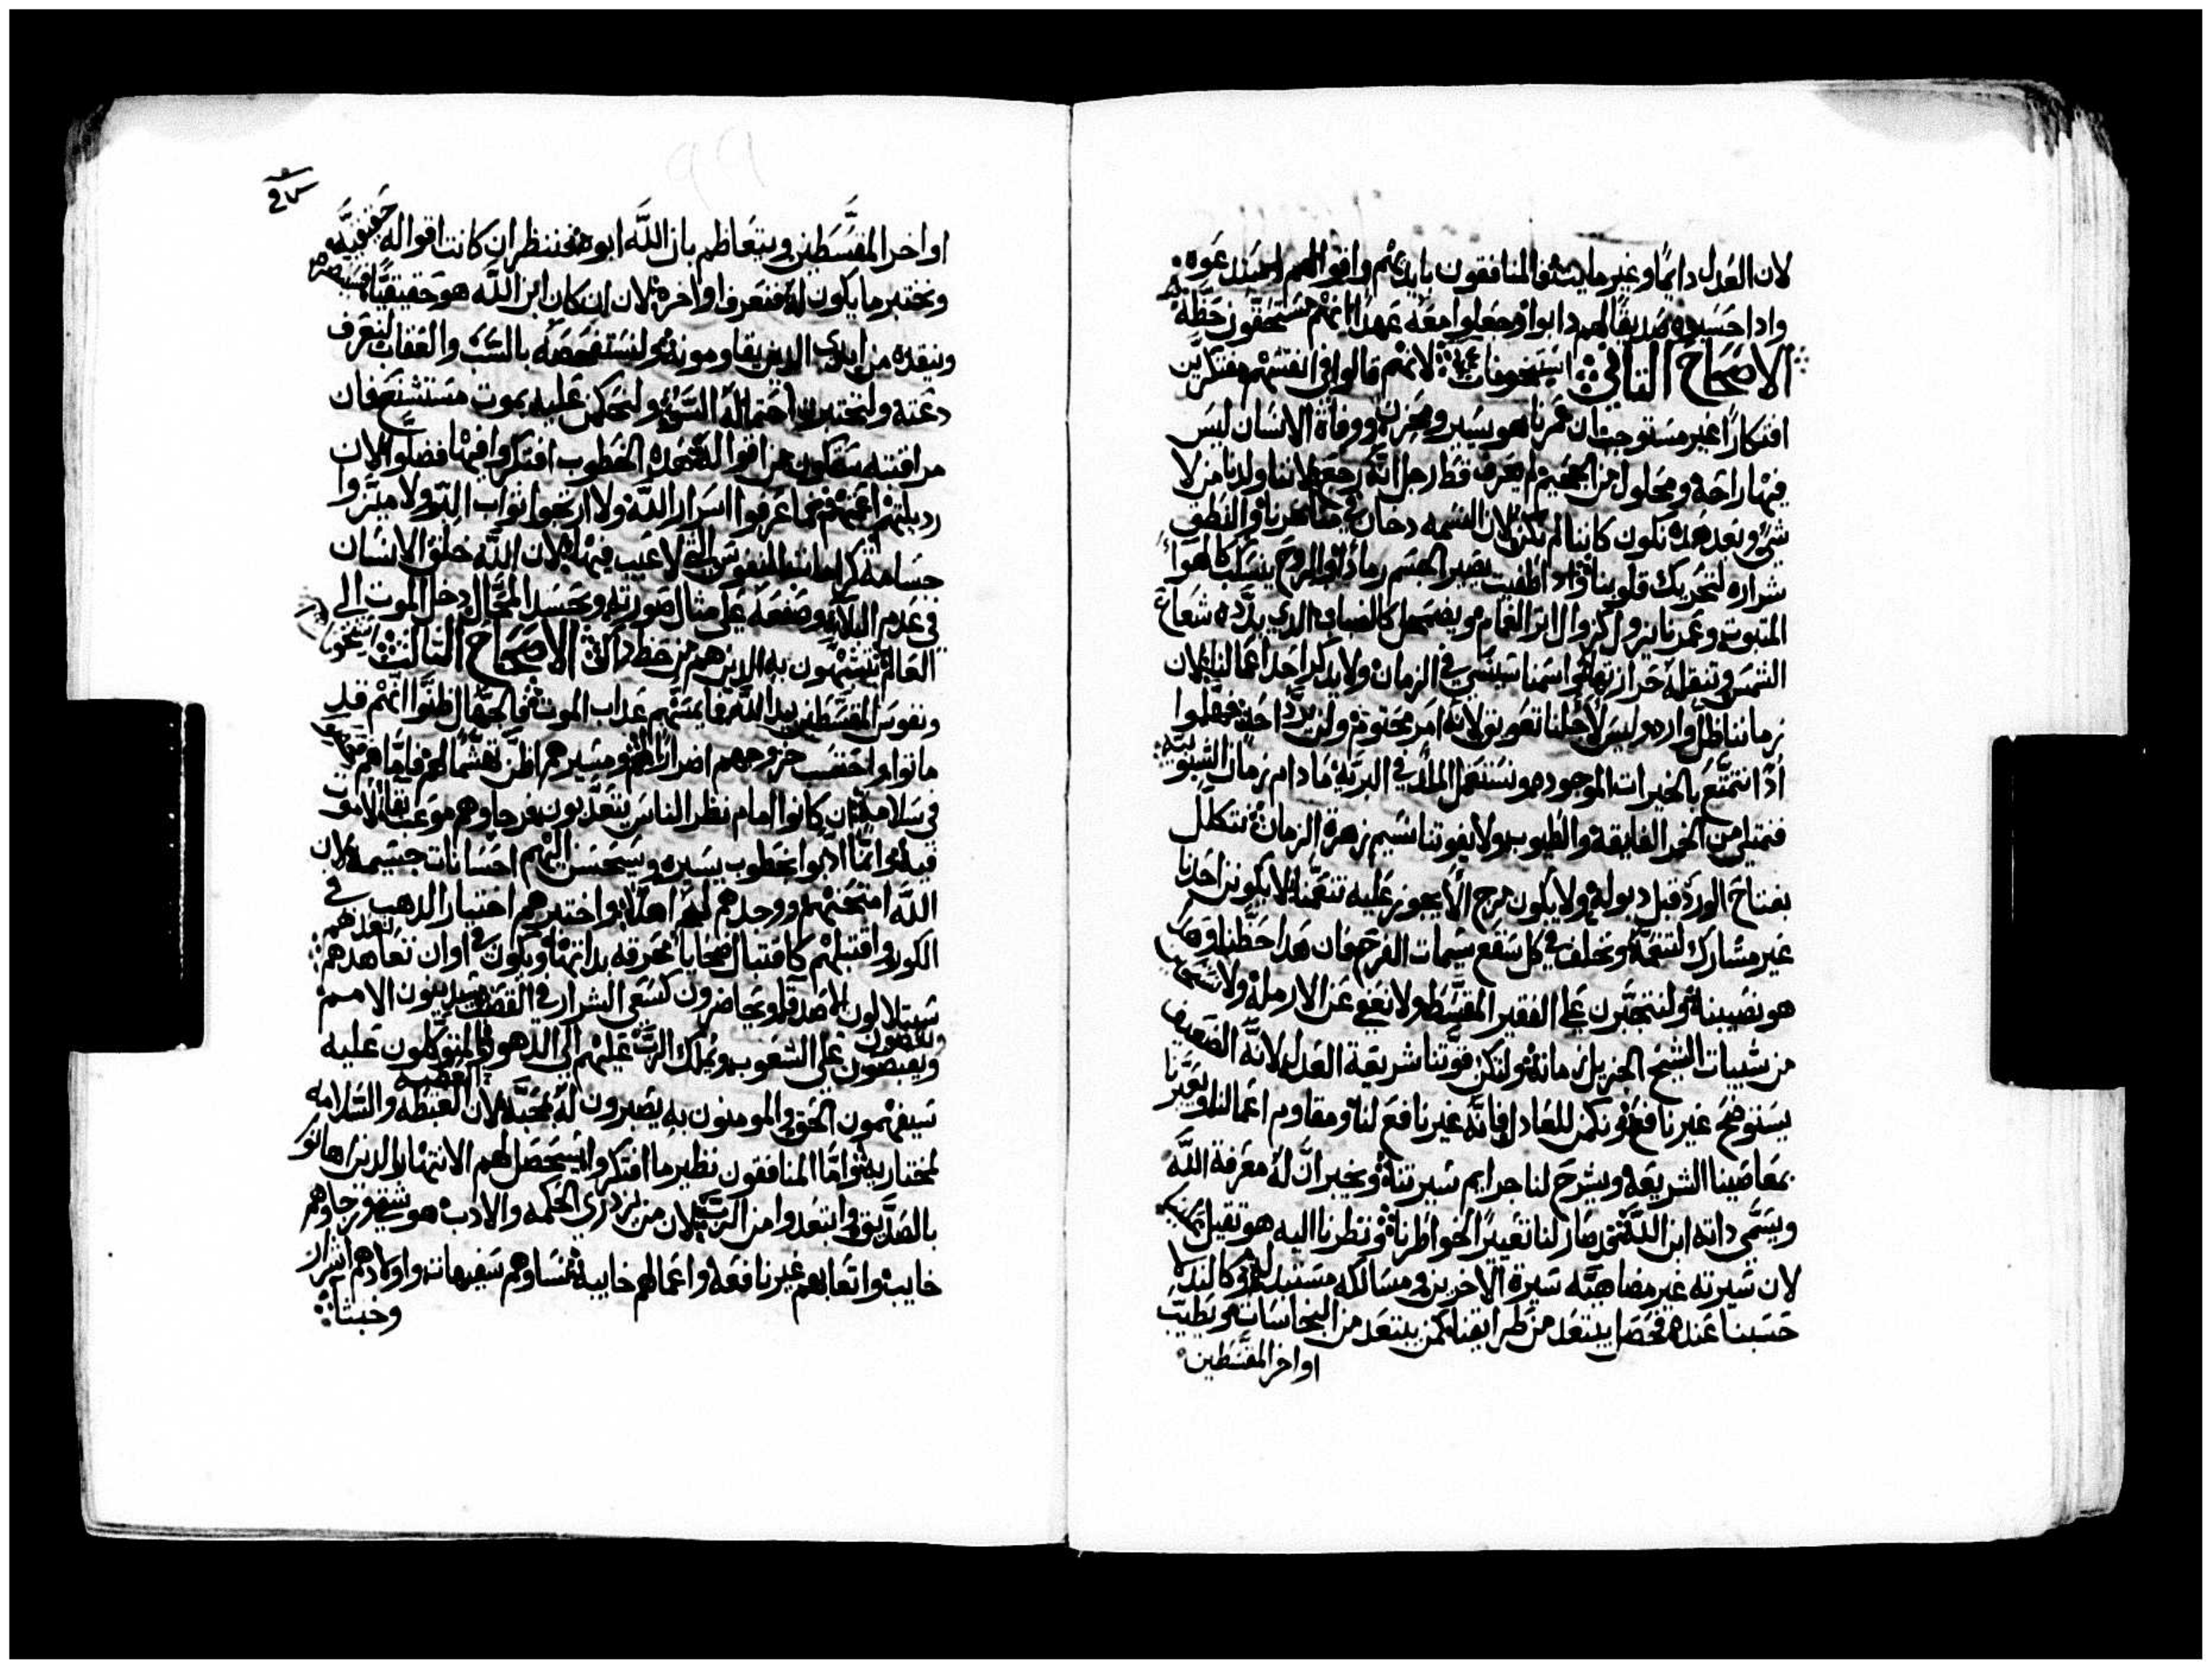 لان العدل دايمًا وغير مايت والمنافقون بايديهم واقوالهم استدعوه
واذا حسبوه صديقًا لهم دابوا وجعلوا معه عهدًا لانهم مستحقون حظه
الاصحاح الثاني لانهم قالوا في انفسهم مفتكرين
افتكارًا غير مستوجب ان عمرنا هو يسير ومحزن ووفاة الانسان ليس
فيها راحة ومحلول من الجحيم لم يعرف قط رجل انه رجع لاننا ولدنا من لا
شي وبعد هذه نكون كاننا لم نكن لان النسمه دخان في مناخرنا والنطق
شراره لتحريك قلوبنا واذا طفيت يصير الجسم رمادًا والروح ينسكب كالهوا
المبتوت وعمرنا يزول كزوال اثر الغمام ويضمحل كالضباب الذي بدده شعاع
الشمس وتثقله حرارتها واسمنا سينسي في الزمان ولا يذكر احد اعمالنا لان
زماننا ظل وارد وليس لاجلنا تعويق لانه امر مختوم ولن يرد احد فهلموا
اذًا نتمتع بالخيرات الموجوده ونستعمل الملذ في البريه ما دام زمان الشبوبيه
فنمتلي من الخمر الفايقه والطيوب ولا يفوتنا نسيم زهرة الزمان نتكلل
بفتاح الورد قبل ذبوله ولا يكون مرج الا يجوز عليه تنعمنا لا يكونن احدنا
غير مشارك لتنعمنا ونخلف في كل صقع سيمات الفرح فان هذا حظنا وهذا
هو نصيبنا ولنتجبرن علي الفقير المقسط ولا نعفي عن الارمله ولا نستحي
من شيبات الشيخ الجزيل زمانه ولتكن قوتنا شريعة العدل لانه الضعيف
يستوضح غير نافع ونكمن للعادل فانه غير نافع لنا ومقاوم اعمالنا ويعيرنا
بمعاصينا الشريعه ويشرح لنا جرايم سيرتنا ويخبر ان له معرفة الله
ويسمي ذاته ابن الله قد صار لنا تعييرًا لخواطرنا ونظرنا اليه هو ثقيل
لان سيرته غير مضاهيه سيرة الاخرين ومسالكه مستبدله وكالندلا
حسبنا عنده فحصل يبتعد من طرايقنا كمن يبتعد من النجاسات ويطيب
اواخر المقسطين
اواخر المقسطين ويتعاظم بان الله ابوه فننظر ان كانت اقواله حقيقيه
ونختبر ما يكون له فنعرف اواخره لان ان كان ابن الله هو حقيقيًا فسينصره
وينقذه من ايدي الذين يقاومونه ولنستفحصه بالسب والعذاب لنعرف
دعته ولنختبرن احتماله السو ولنحكمن عليه بموت مستشنع فان
مراقبته ستكون من اقواله فهذه الخطوب افتكروا فيها فضلوا لان
رديلتهم اعمتهم فما عرفوا اسرار الله ولا ارتجوا ثواب البر ولا ميزوا
جسامة كرامات النفوس التي لا عيب فيها لان الله خلق الانسان
في عدم البلا وصنعه علي مثال صورته وبحسد المحال دخل الموت الي
العالم يتشبهون به الذين هم من حظ ذاك الاصحاح الثالث
ونفوس المقسطين بيد الله فما يمسهم عذاب الموت في الجهال ظنوا انهم قد
ماتوا واحتسب خروجهم اضرارًا لهم ومسيرهم اظن هشمًا لهم فاما هم
في سلامه ان كانوا امام نظر الناس يتعذبون فرجاوهم موعب بقا لا موت
فيه ادبوا بخطوب يسيره وسيحسن اليهم احسانات جسيمه لان
الله امتحنهم ووجدهم له اهلًا واختبرهم اختبار الذهب في
الكور واقتبلهم كاقتبال ضحايا محرقه بذاتها ويكون في اوان تعاهدهم
سيتلالون الاصدقا ويحاضرون كسعي الشرار في القصب يدينون الامم
ويقبضون علي الشعوب ويملك الرب عليهم الي الدهور المتوكلون عليه
سيفهمون الحق والمومنون به يصبرون له بمحبه لان الغبطه والسلامه
لمختاريه واما المنافقون نظير ما افتكروا سيحصل لهم الانتهار الذين اهانوا
بالصديق وابتعدوا من الرب لان من يزدري الحكمه والادب هو شقي ورجاوهم
خايب واتعابهم غير نافعه واعمالهم خايبه نساوهم سفيهات واولادهم اشرار
وخبثا